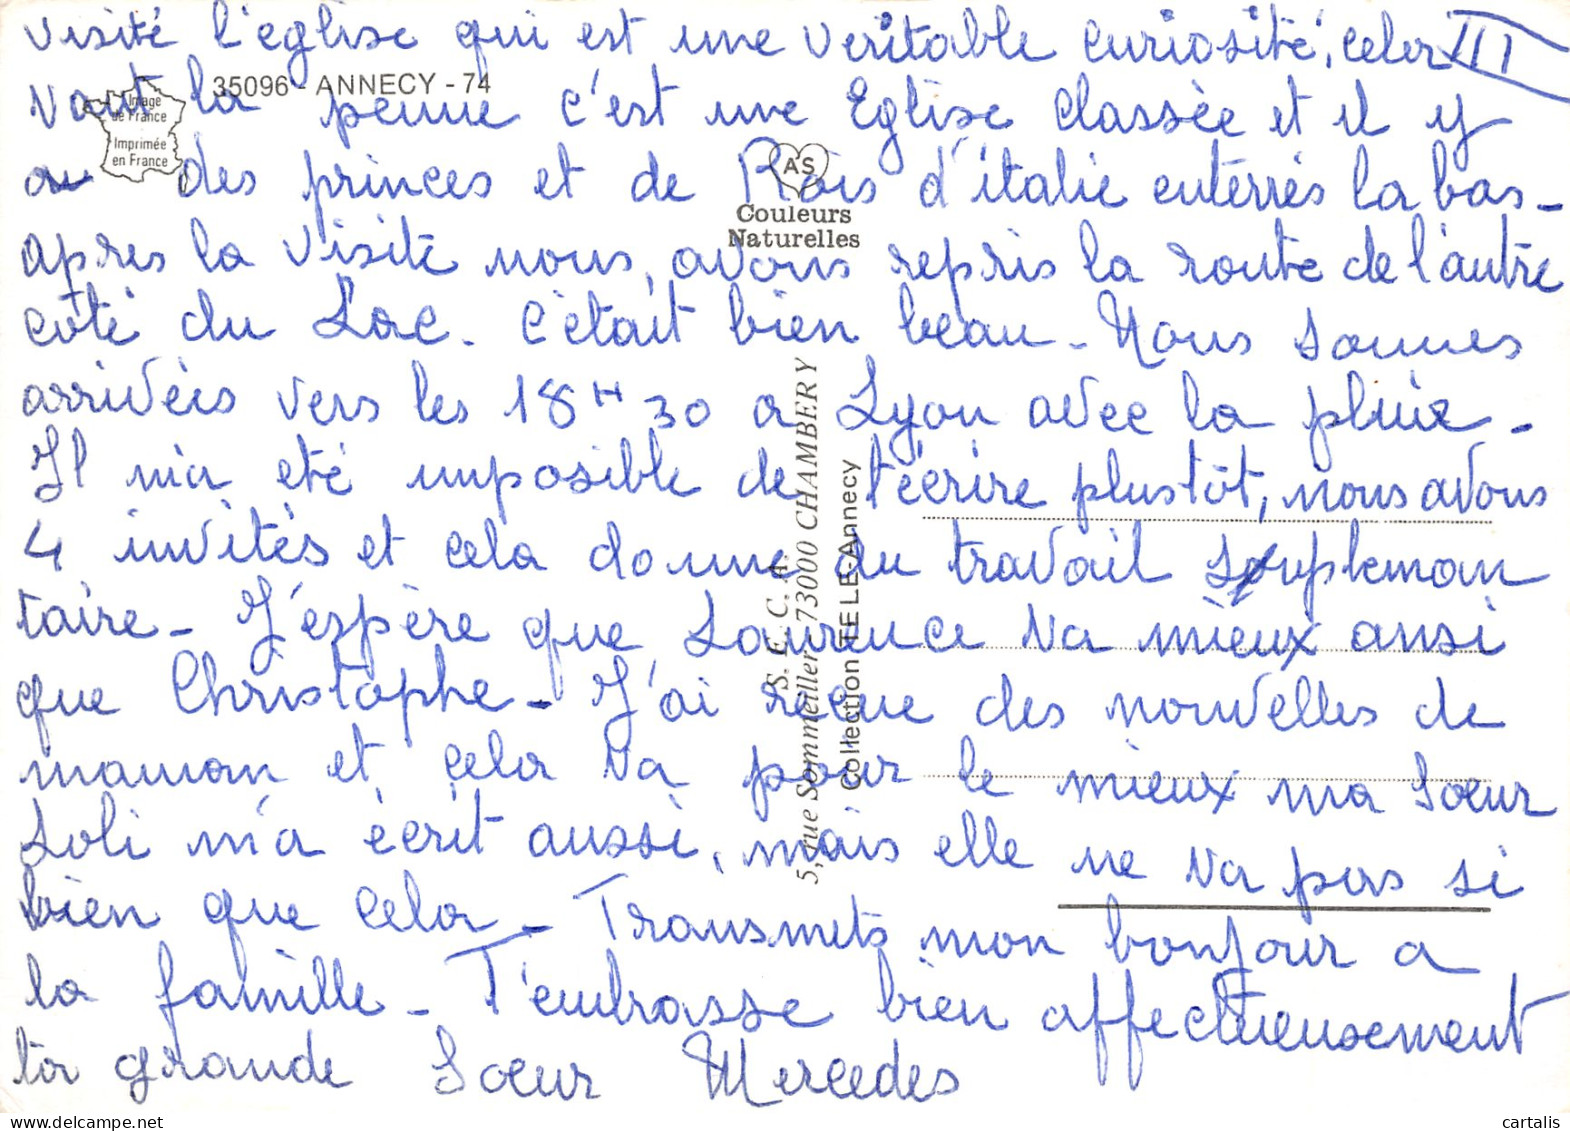 III
visité l'eglise qui est une veritable curiosité, cela
vaut la peinne c'est une Eglise classée et il y
a des princes et de Rois d'italie enterrés la bas-
apres la visite nous, avons repris la route de l'autre
coté du Lac. C'était bien beau - Nous sommes
arrivées vers les 18 H 30 a Lyon avec la pluie -
Il m'a eté imposible de t'écrire plustôt, nous avons
4 invités et cela donne du travail supleman
taire - J'espère que Laurence va mieux ansi
que Christophe - J'ai reçue des nouvelles de
maman et cela va pour le mieux ma Soeur
Loli m'a écrit aussi, mais elle ne va pas si
bien que cela - Transmets mon bonjour a
la famille - T'embrasse bien affectueusement
ta grande Soeur Mercedes
35096 - ANNECY - 74
Image
de France
Imprimée
en France
AS
Couleurs
Naturelles
S. E. C. A.
5, rue Sommeiller - 73000 CHAMBERY
Collection TELE-Annecy
cartalis